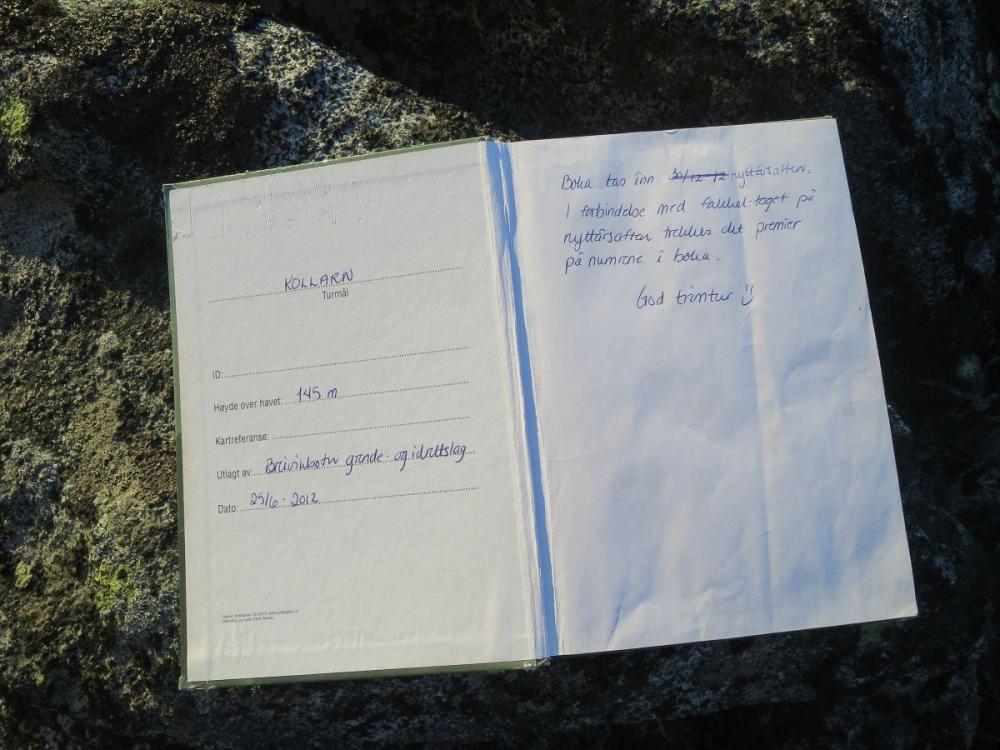 KOLLARN
Turmål
ID:
Høyde over havet: 145 m
Kartreferanse:
Utlagt av: Breivikbotn grende- og idrettslag
Dato: 25/6-2012
Boka tas inn 30/12-12 nyttårsaften.
I forbindelse med fakkel-toget på
nyttårsaften trekkes det premier
på numrene i boka.
God trimtur